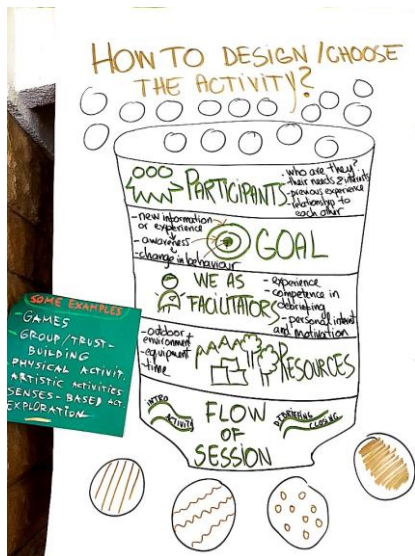 HOW TO DESIGN/CHOOSE
THE ACTIVITY?
PARTICIPANTS
- who are they?
- their needs & interests
- previous experience
- relationship to
each other
- new information
or experience
- awareness
- change in behaviour
GOAL
WE AS
FACILITATORS
- experience
- competence in
debriefing
- personal interest
and motivation
- outdoor +
environment
- equipment
- time
RESOURCES
INTRO
ACTIVITY
FLOW
OF
SESSION
DEBRIEFING
CLOSING
SOME EXAMPLES
- GAMES
- GROUP/TRUST-
BUILDING
- PHYSICAL ACTIVIT.
- ARTISTIC ACTIVITIES
- SENSES-BASED ACT.
- EXPLORATION